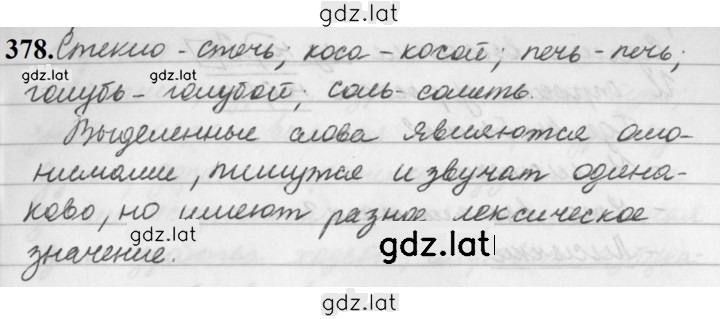 gdz.lat
378. Стекло - стечь; коса - косой; печь - печь;
gdz.lat gdz.lat
голубь - голубой; соль - солить.
Выделенные слова являются омо-
нимами, пишутся и звучат одина-
ково, но имеют разное лексическое
gdz.lat gdz.lat
значение.
gdz.lat